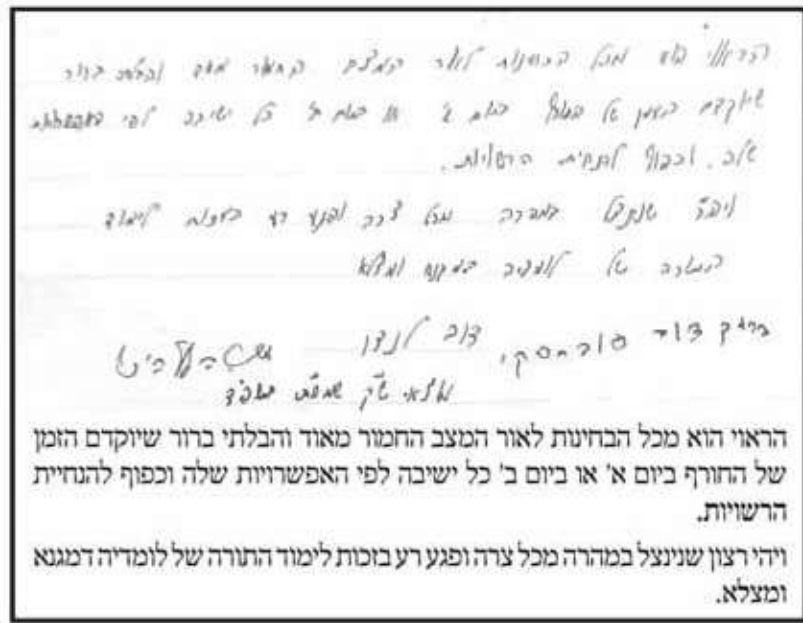 הראוי הוא מכל הבחינות לאור המצב החמור מאד והבלתי ברור
שיוקדם הזמן של החורף ביום א' או ביום ב' כל ישיבה לפי האפשרויות
שלה. וכפוף להנחית הרשויות.
ויה"ר שנינצל במהרה מכל צרה ופגע רע בזכות לימוד
התורה של לומדיה דמגנא ומצלא
ברוך דוב פוברסקי דוב לנדו
מוצאי ש"ק שמח"ת תשפ"ד
הראוי הוא מכל הבחינות לאור המצב החמור מאוד והבלתי ברור שיוקדם הזמן
של החורף ביום א' או ביום ב' כל ישיבה לפי האפשרויות שלה וכפוף להנחיית
הרשויות.
ויהי רצון שנינצל במהרה מכל צרה ופגע רע בזכות לימוד התורה של לומדיה דמגנא
ומצלא.